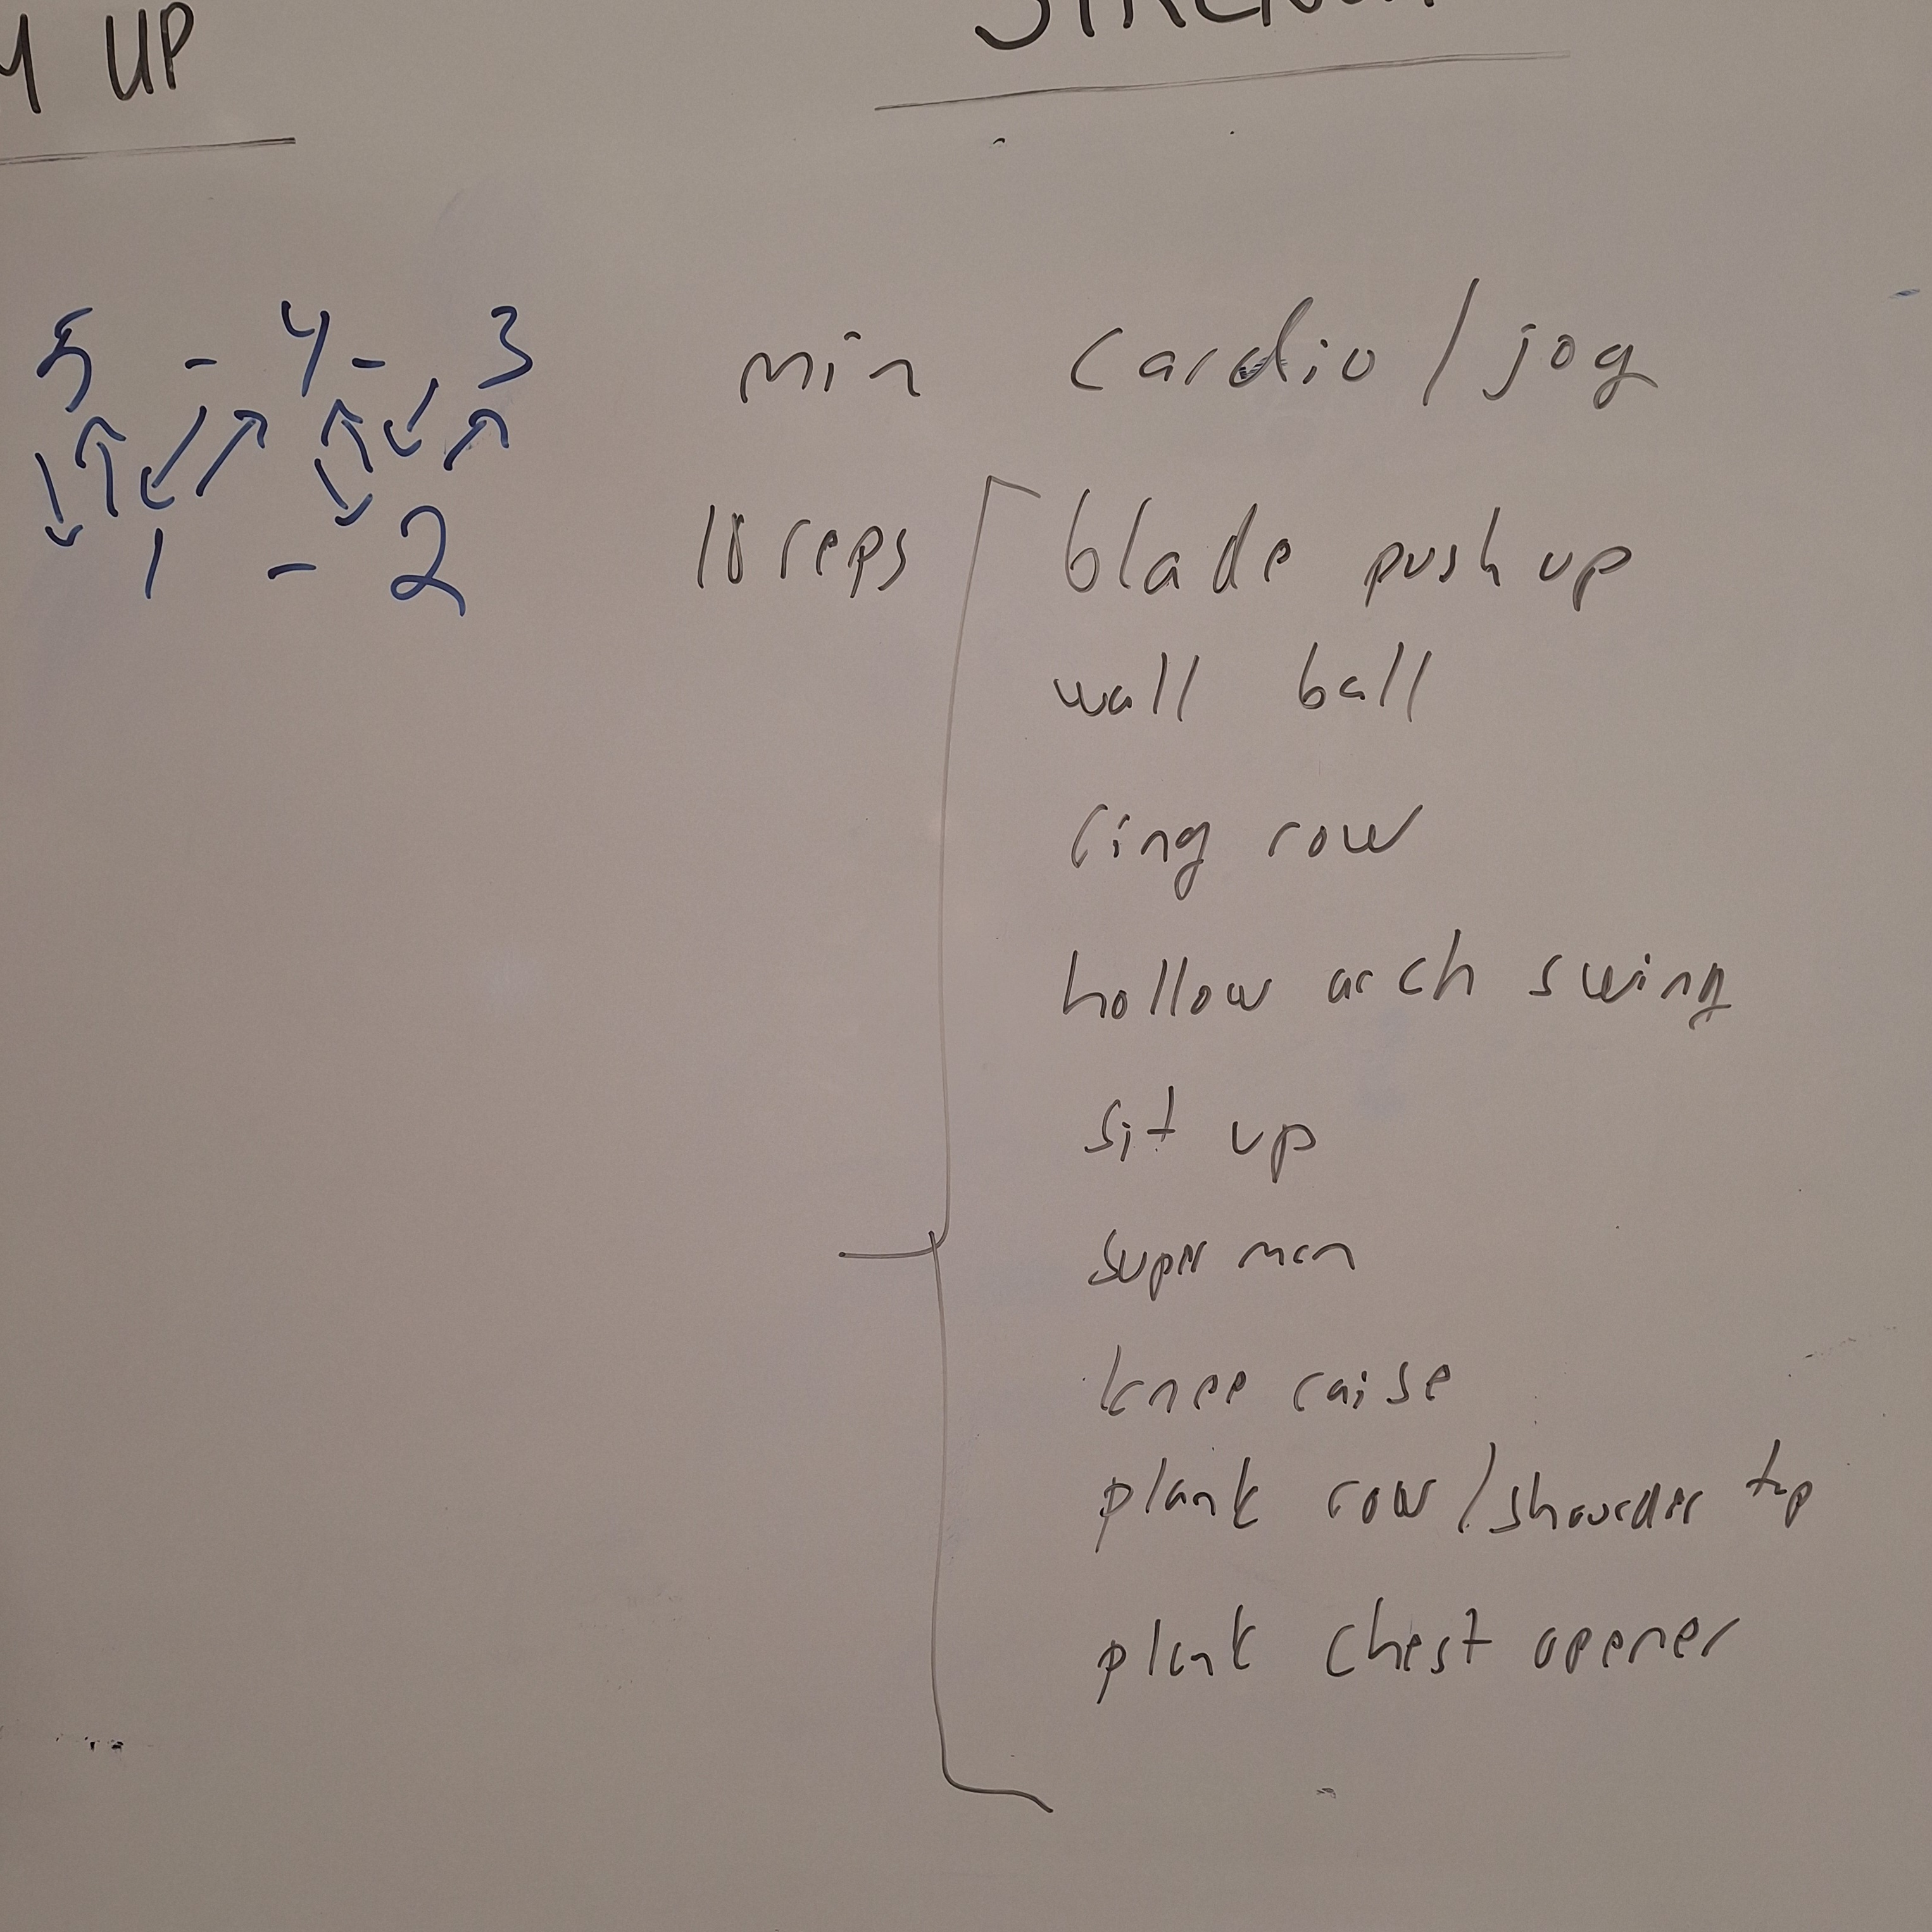 UP
5 - 4 - 3 min cardio / jog
1 - 2 10 reps blade push up
wall ball
ring row
hollow arch swing
sit up
super man
knee raise
plank row / shoulder tap
plank chest opener